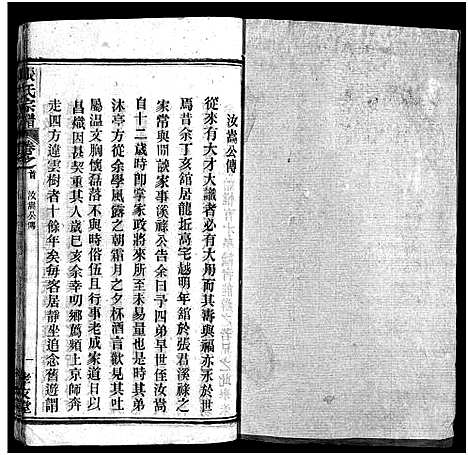 汝嵩公傳
從來有大才大識者必有大用而其壽與福亦永於世
焉昔余丁亥舘居龍折高宅越明年舘於張君溪祿公
家常與閒說家事溪祿公告余曰予四弟早世侄汝嵩
自十二歲時即掌家政將來所至未易量也是時其
沐亭方從余學風露之朝霜月之夕杯酒言歡見其吐
屬温文胸懷磊落不與時俗伍且行事老成家道日以
昌熾因甚契重其人歲巳亥余幸明鄉薦頻上京師奔
走四方違雲樹者十餘年矣每客居靜坐追念舊遊聞
張氏宗譜
卷之首 汝嵩公傳
一 孝友堂